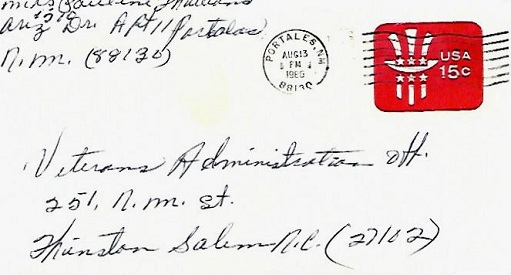 Mrs Pauline
Ariz Dr. Apt 11 Portales
N.M. (88130)
PORTALES, NM
AUG 13
PM
88130
USA
15c
Veterans Administration Off.
251, N.M. St.
Winston Salem N.C. (27102)